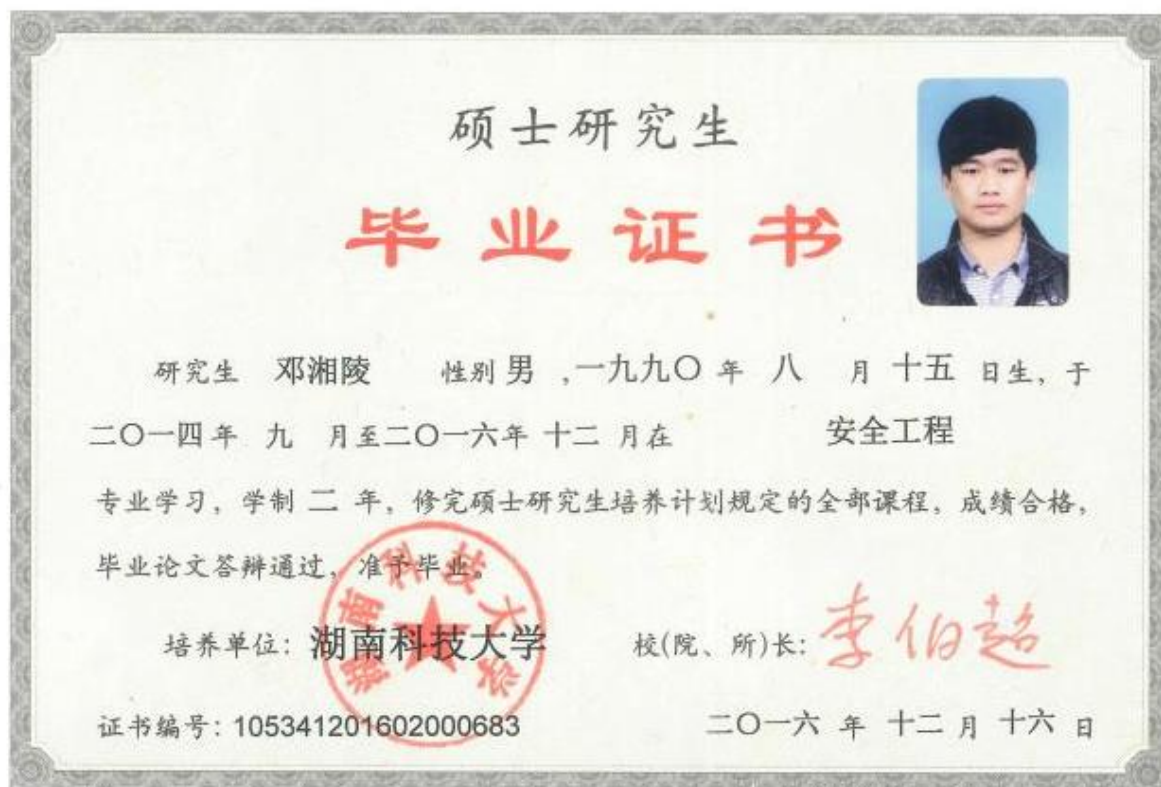 硕士研究生
毕业证书
研究生 邓湘陵 性别 男 ,一九九〇 年 八 月 十五 日生, 于
二〇一四 年 九 月至二〇一六年 十二 月在 安全工程
专业学习, 学制 二 年, 修完硕士研究生培养计划规定的全部课程, 成绩合格,
毕业论文答辩通过, 准予毕业。
湖南科技大学
培养单位: 湖南科技大学 校(院、所)长: 李伯超
证书编号: 105341201602000683 二〇一六 年 十二 月 十六 日